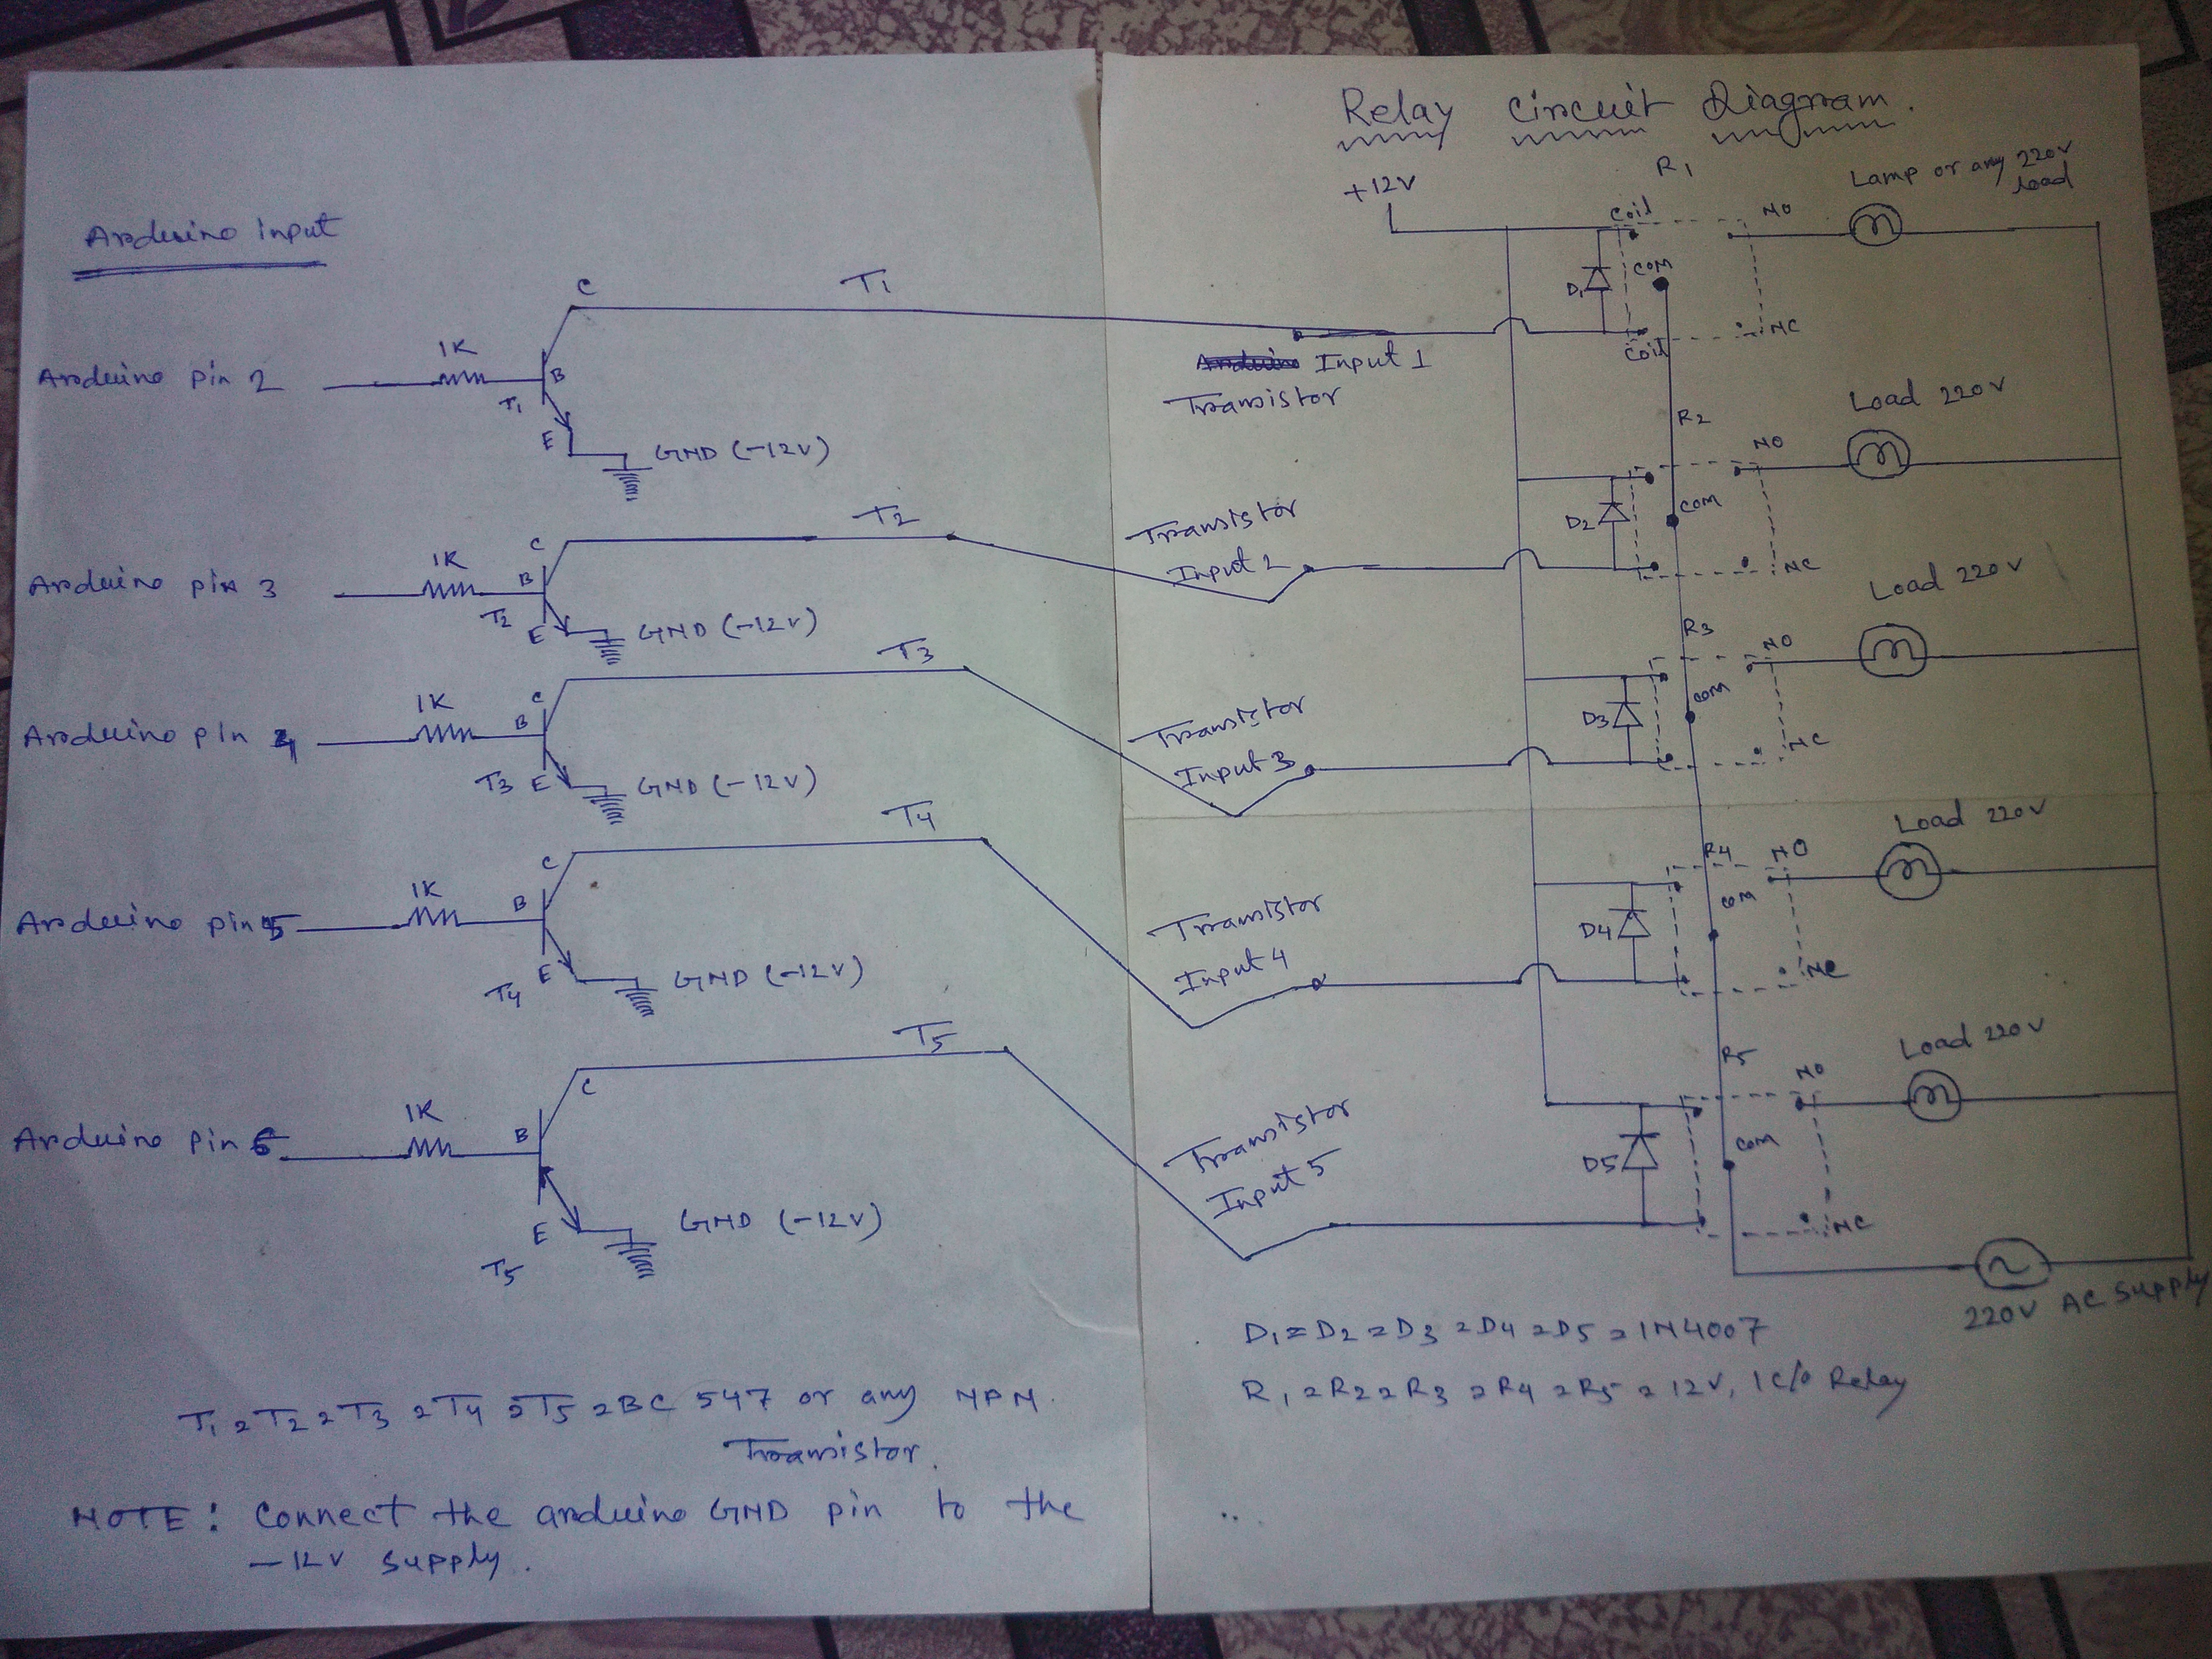 Relay Circuit Diagram.
Arduino input
Arduino pin 2
1K
B
T1
C
E
GND (-12V)
T1
Arduino pin 3
1K
B
T2
C
E
GND (-12V)
T2
Arduino pin 4
1K
B
T3
C
E
GND (-12V)
T3
Arduino pin 5
1K
B
T4
C
E
GND (-12V)
T4
Arduino pin 6
1K
B
T5
C
E
GND (-12V)
T5
T1 = T2 = T3 = T4 = T5 = BC 547 or any NPN
Transistor.
NOTE: Connect the arduino GND pin to the
-12V supply.
+12V
R1
Lamp or any 220V
load
Coil
NO
COM
D1
NC
Coil
Input 1
Transistor
R2
Load 220V
NO
COM
D2
NC
Transistor
Input 2
R3
Load 220V
NO
COM
D3
NC
Transistor
Input 3
R4
Load 220V
NO
COM
D4
NC
Transistor
Input 4
R5
Load 220V
NO
COM
D5
NC
Transistor
Input 5
220V AC Supply
D1 = D2 = D3 = D4 = D5 = 1N4007
R1 = R2 = R3 = R4 = R5 = 12V, 1 C/O Relay